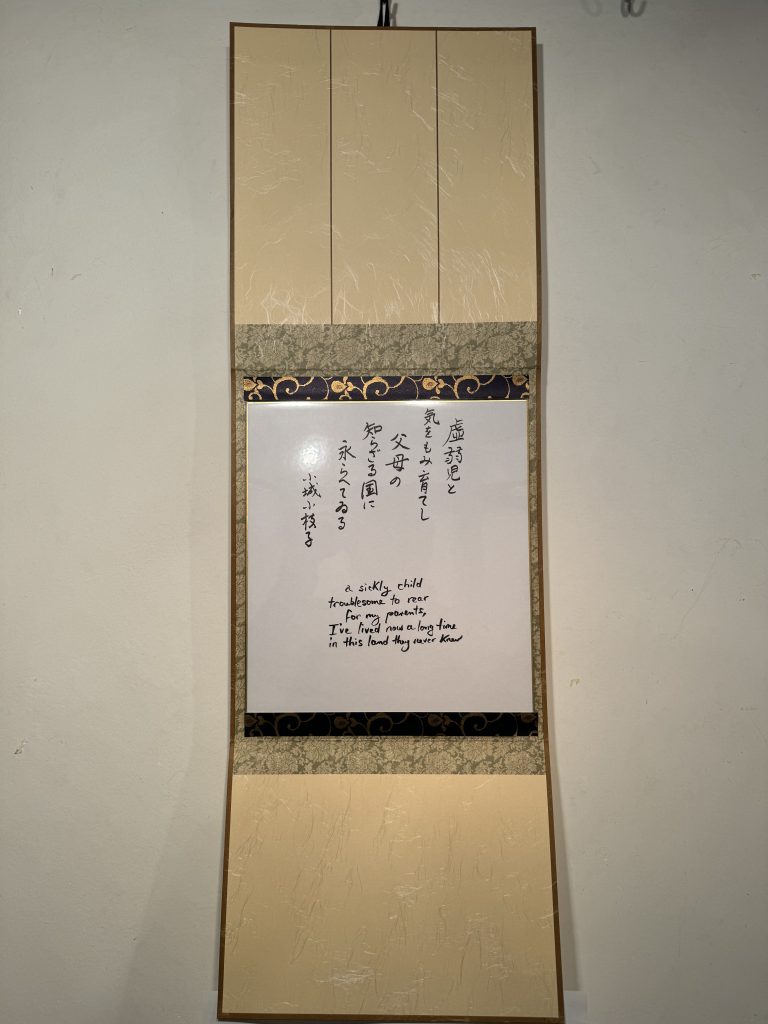 虚弱児と
気をもみ育てし
父母の
知らざる国に
永らへてゐる
小城小枝子
a sickly child
troublesome to rear
for my parents,
I've lived now a long time
in this land they never knew